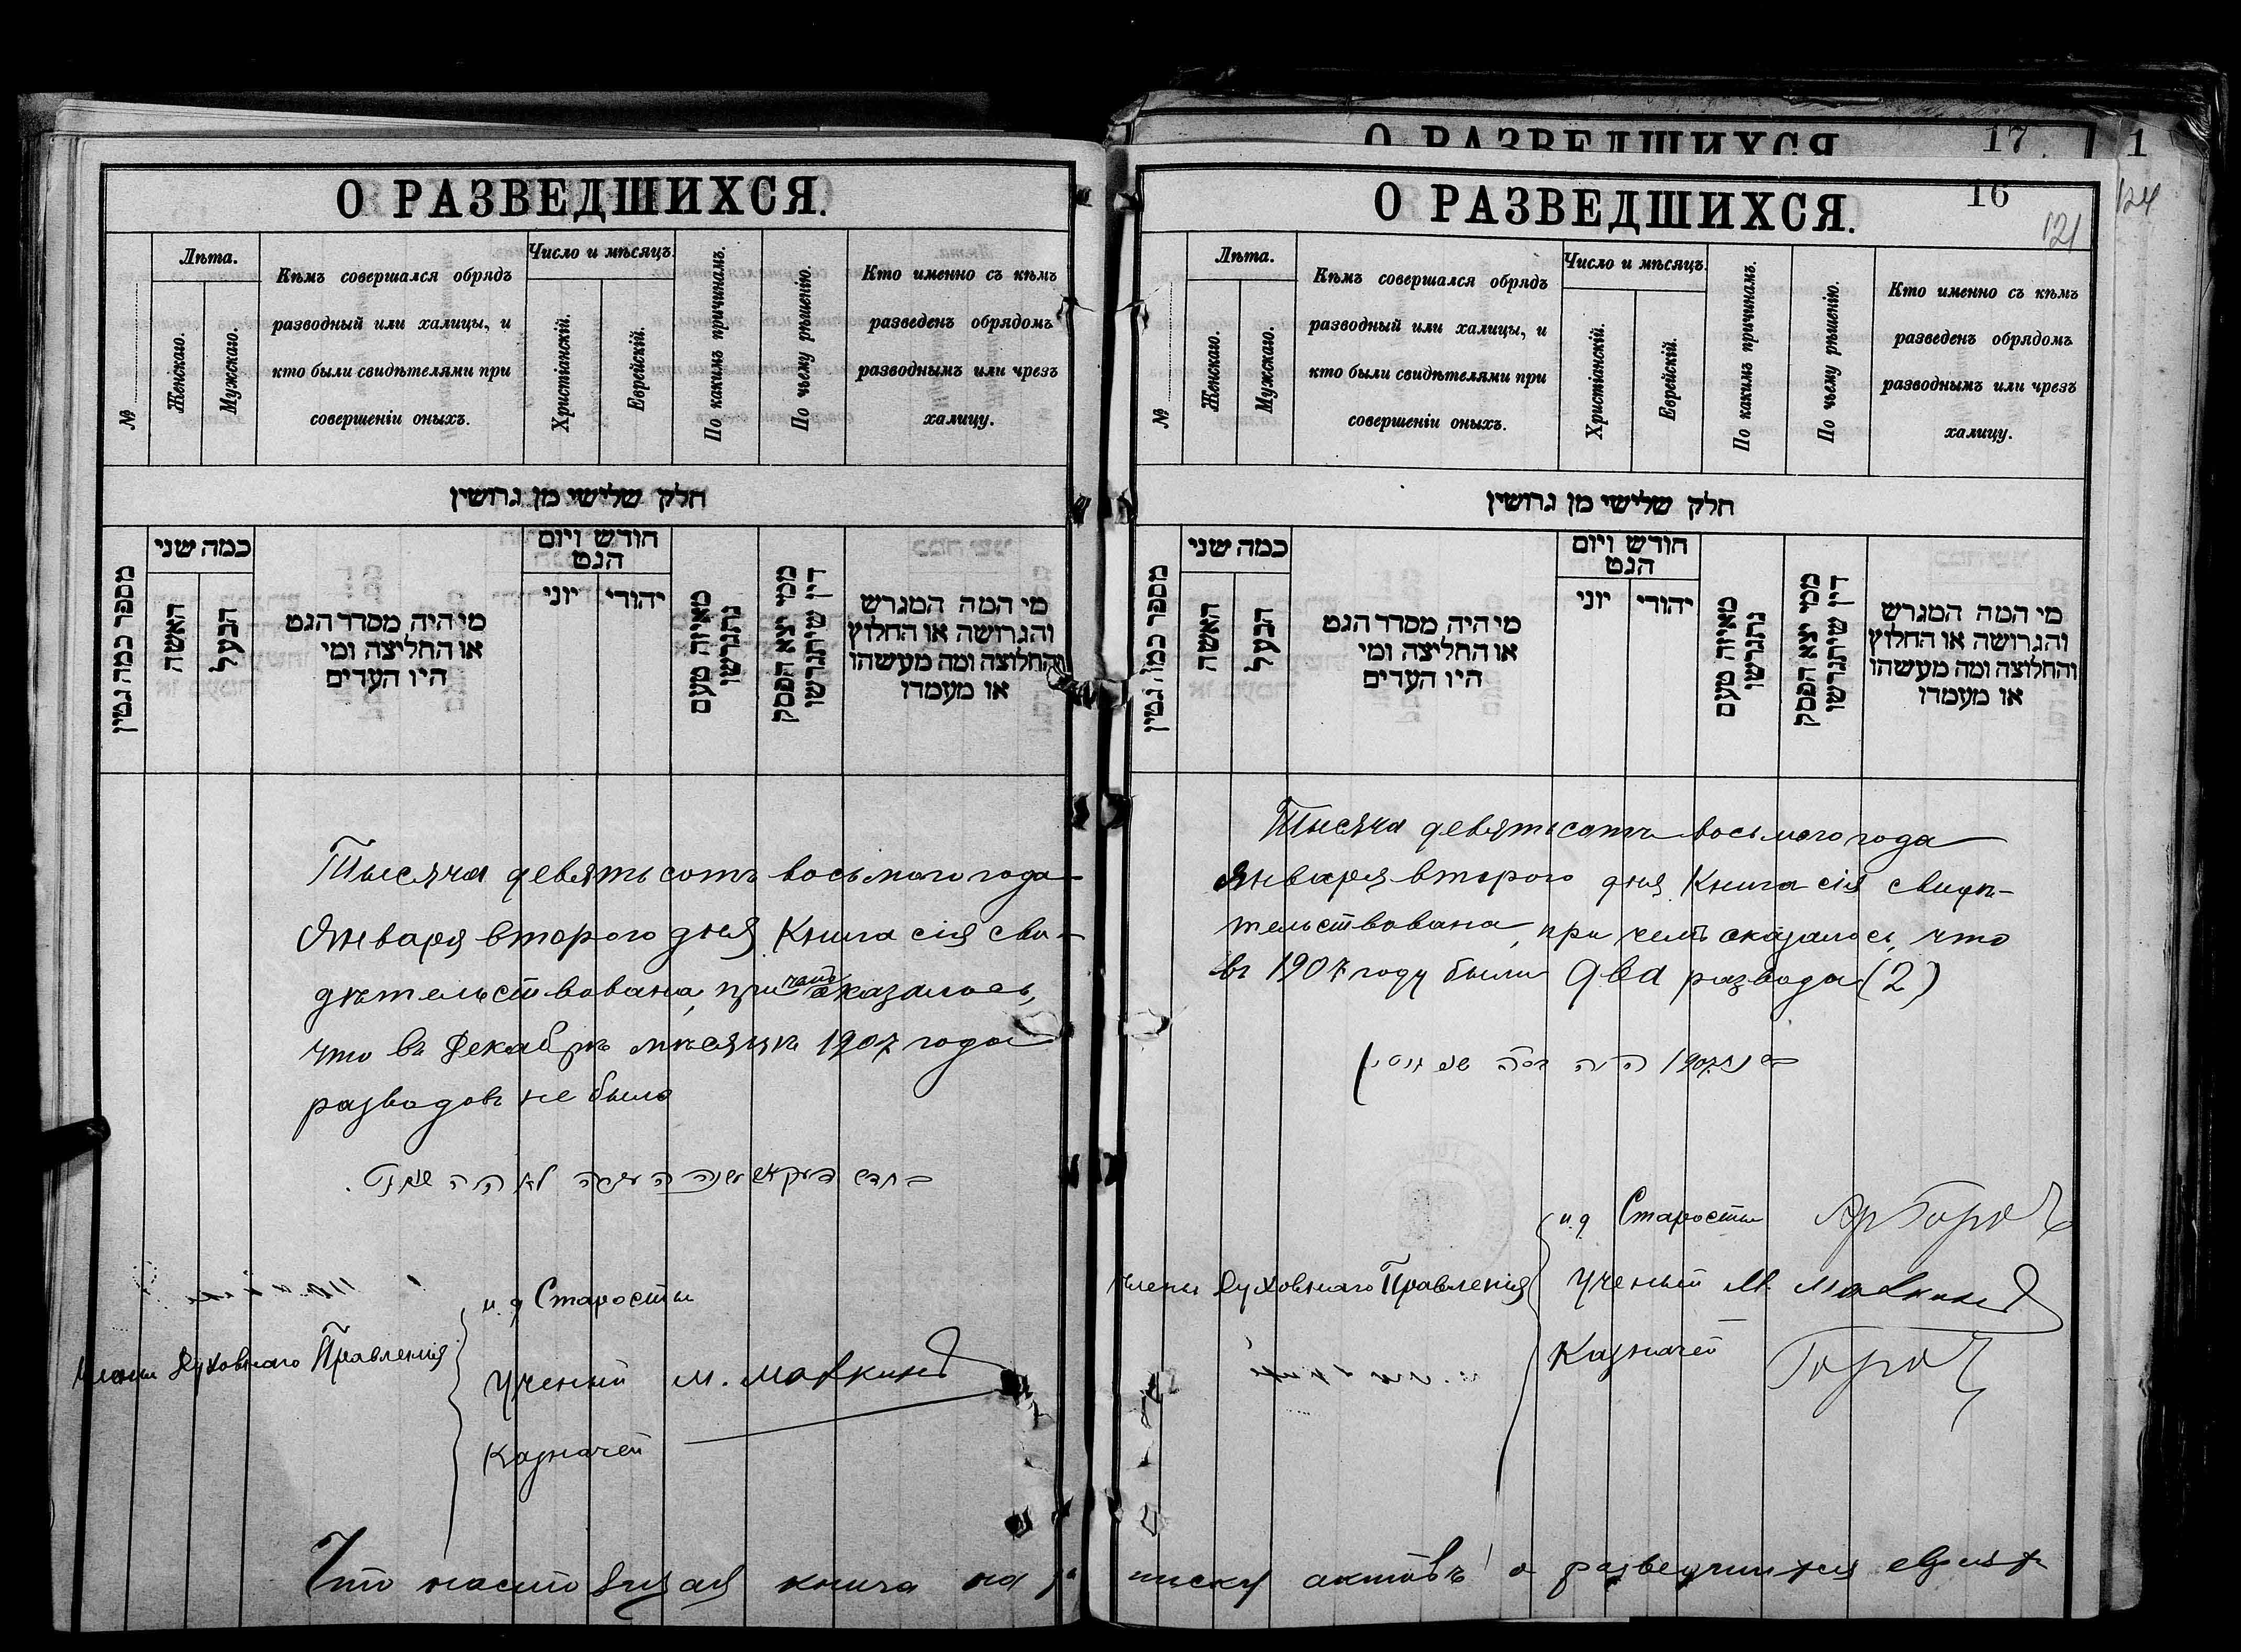 О РАЗВЕДШИХСЯ.
№
Лѣта.
Женскаго.
Мужскаго.
Кѣмъ совершался обрядъ
разводный или халицы, и
кто были свидѣтелями при
совершеніи оныхъ.
Число и мѣсяцъ.
Христіанскій.
Еврейскій.
По какимъ причинамъ.
По чьему рѣшенію.
Кто именно съ кѣмъ
разведенъ обрядомъ
разводнымъ или чрезъ
халицу.
חלק שלישי מן גרושין
מספר כמה גטין
כמה שני
האשה
הבעל
מי היה מסדר הגט
או החליצה ומי
היו העדים
חודש ויום
הגט
יוני
יהודי
מאיזה טעם
נתגרשו
ממי יצא הפסק
דין שיתגרשו
מי המה המגרש
והגרושה או החלוץ
והחלוצה ומה מעשהו
או מעמדו
Тысяча девятьсотъ восьмого года
Января второго дня Книга сія сви-
дѣтельствована, при чемъ оказалось,
что въ Декабрѣ мѣсяцѣ 1907 года
разводовъ не было
Члены Духовнаго Правленія
и. д. Старосты
Ученый М. Мавкинъ
Казначей
Что настоящая книга на за
О РАЗВЕДШИХСЯ. 17
1
124
О РАЗВЕДШИХСЯ. 16
121
№
Лѣта.
Женскаго.
Мужскаго.
Кѣмъ совершался обрядъ
разводный или халицы, и
кто были свидѣтелями при
совершеніи оныхъ.
Число и мѣсяцъ.
Христіанскій.
Еврейскій.
По какимъ причинамъ.
По чьему рѣшенію.
Кто именно съ кѣмъ
разведенъ обрядомъ
разводнымъ или чрезъ
халицу.
חלק שלישי מן גרושין
מספר כמה גטין
כמה שני
האשה
הבעל
מי היה מסדר הגט
או החליצה ומי
היו העדים
חודש ויום
הגט
יוני
יהודי
מאיזה טעם
נתגרשו
ממי יצא הפסק
דין שיתגרשו
מי המה המגרש
והגרושה או החלוץ
והחלוצה ומה מעשהו
או מעמדו
Тысяча девятьсотъ восьмого года
Января второго дня Книга сія свидѣ-
тельствована, при чемъ оказалось, что
въ 1907 году были два развода (2)
1907
Члены Духовнаго Правленія
и. д. Старосты
Ученый М. Мавкинъ
Казначей
писку актовъ о разведшихся евреях